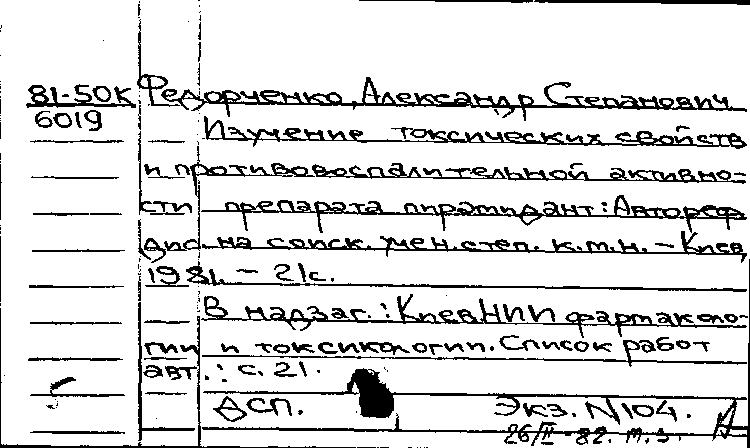 81-50к Федорченко, Александр Степанович
6019 Изучение токсических свойств
и противовоспалительной активно-
сти препарата пирамидант: Автореф
дис. на соиск. учен. степ. к.м.н. – Киев,
1981. – 21с.
В надзаг.: Киев. НИИ фармаколо-
гии и токсикологии. Список работ
авт.: с. 21.
ДСП. Экз. N104.
26/II-82.